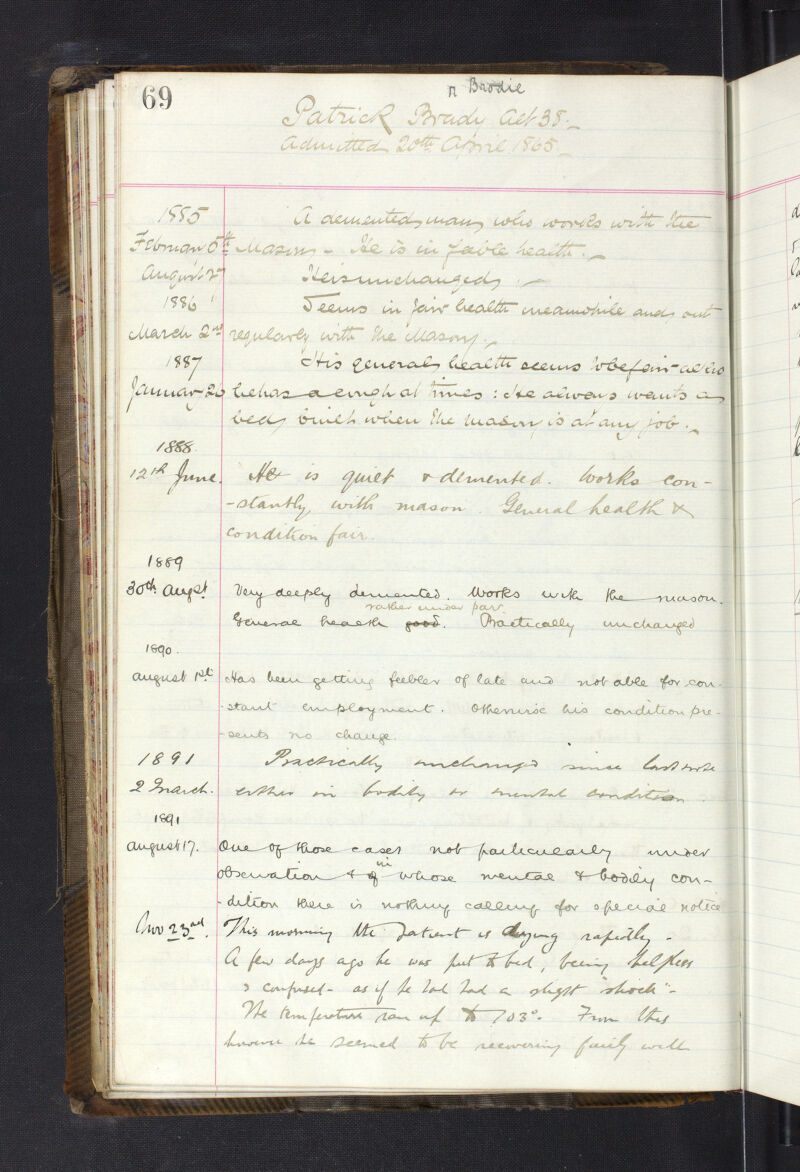 69
or Brodie
Patrick Brady Aet 38.
Admitted 20th April 1865
1885 A demented man who works with the
February 5th Mason - He is in feeble health.
August 2 He is unchanged.
1886 Seems in fair health meanwhile and out
March 2nd regularly with the Mason.
1887 His general health seems to be fair - altho
January 20 he has a cough at times: He always wants a
bed built when the mason is at any job.
1888
12th June. He is quiet & demented. Works con-
-stantly with mason. General health &
condition fair.
1889
30th Augst. Very deeply demented. Works with the mason.
rather under par
General health good. Practically unchanged
1890.
August 1st Has been getting feebler of late and not able for con-
-stant employment. Otherwise his condition pre-
-sents no change.
1891 Practically unchanged since last note
2 March. either in bodily or mental condition.
1891
August 17. One of those cases not particularly under
observation & in whose mental & bodily con-
-dition there is nothing calling for special notice
Nov 23rd. This morning the patient is dying rapidly -
A few days ago he was put to bed, being helpless
& confused - as if he had had a slight "shock" -
The temperature ran up to 103°. From this
however he seemed to be recovering fairly well